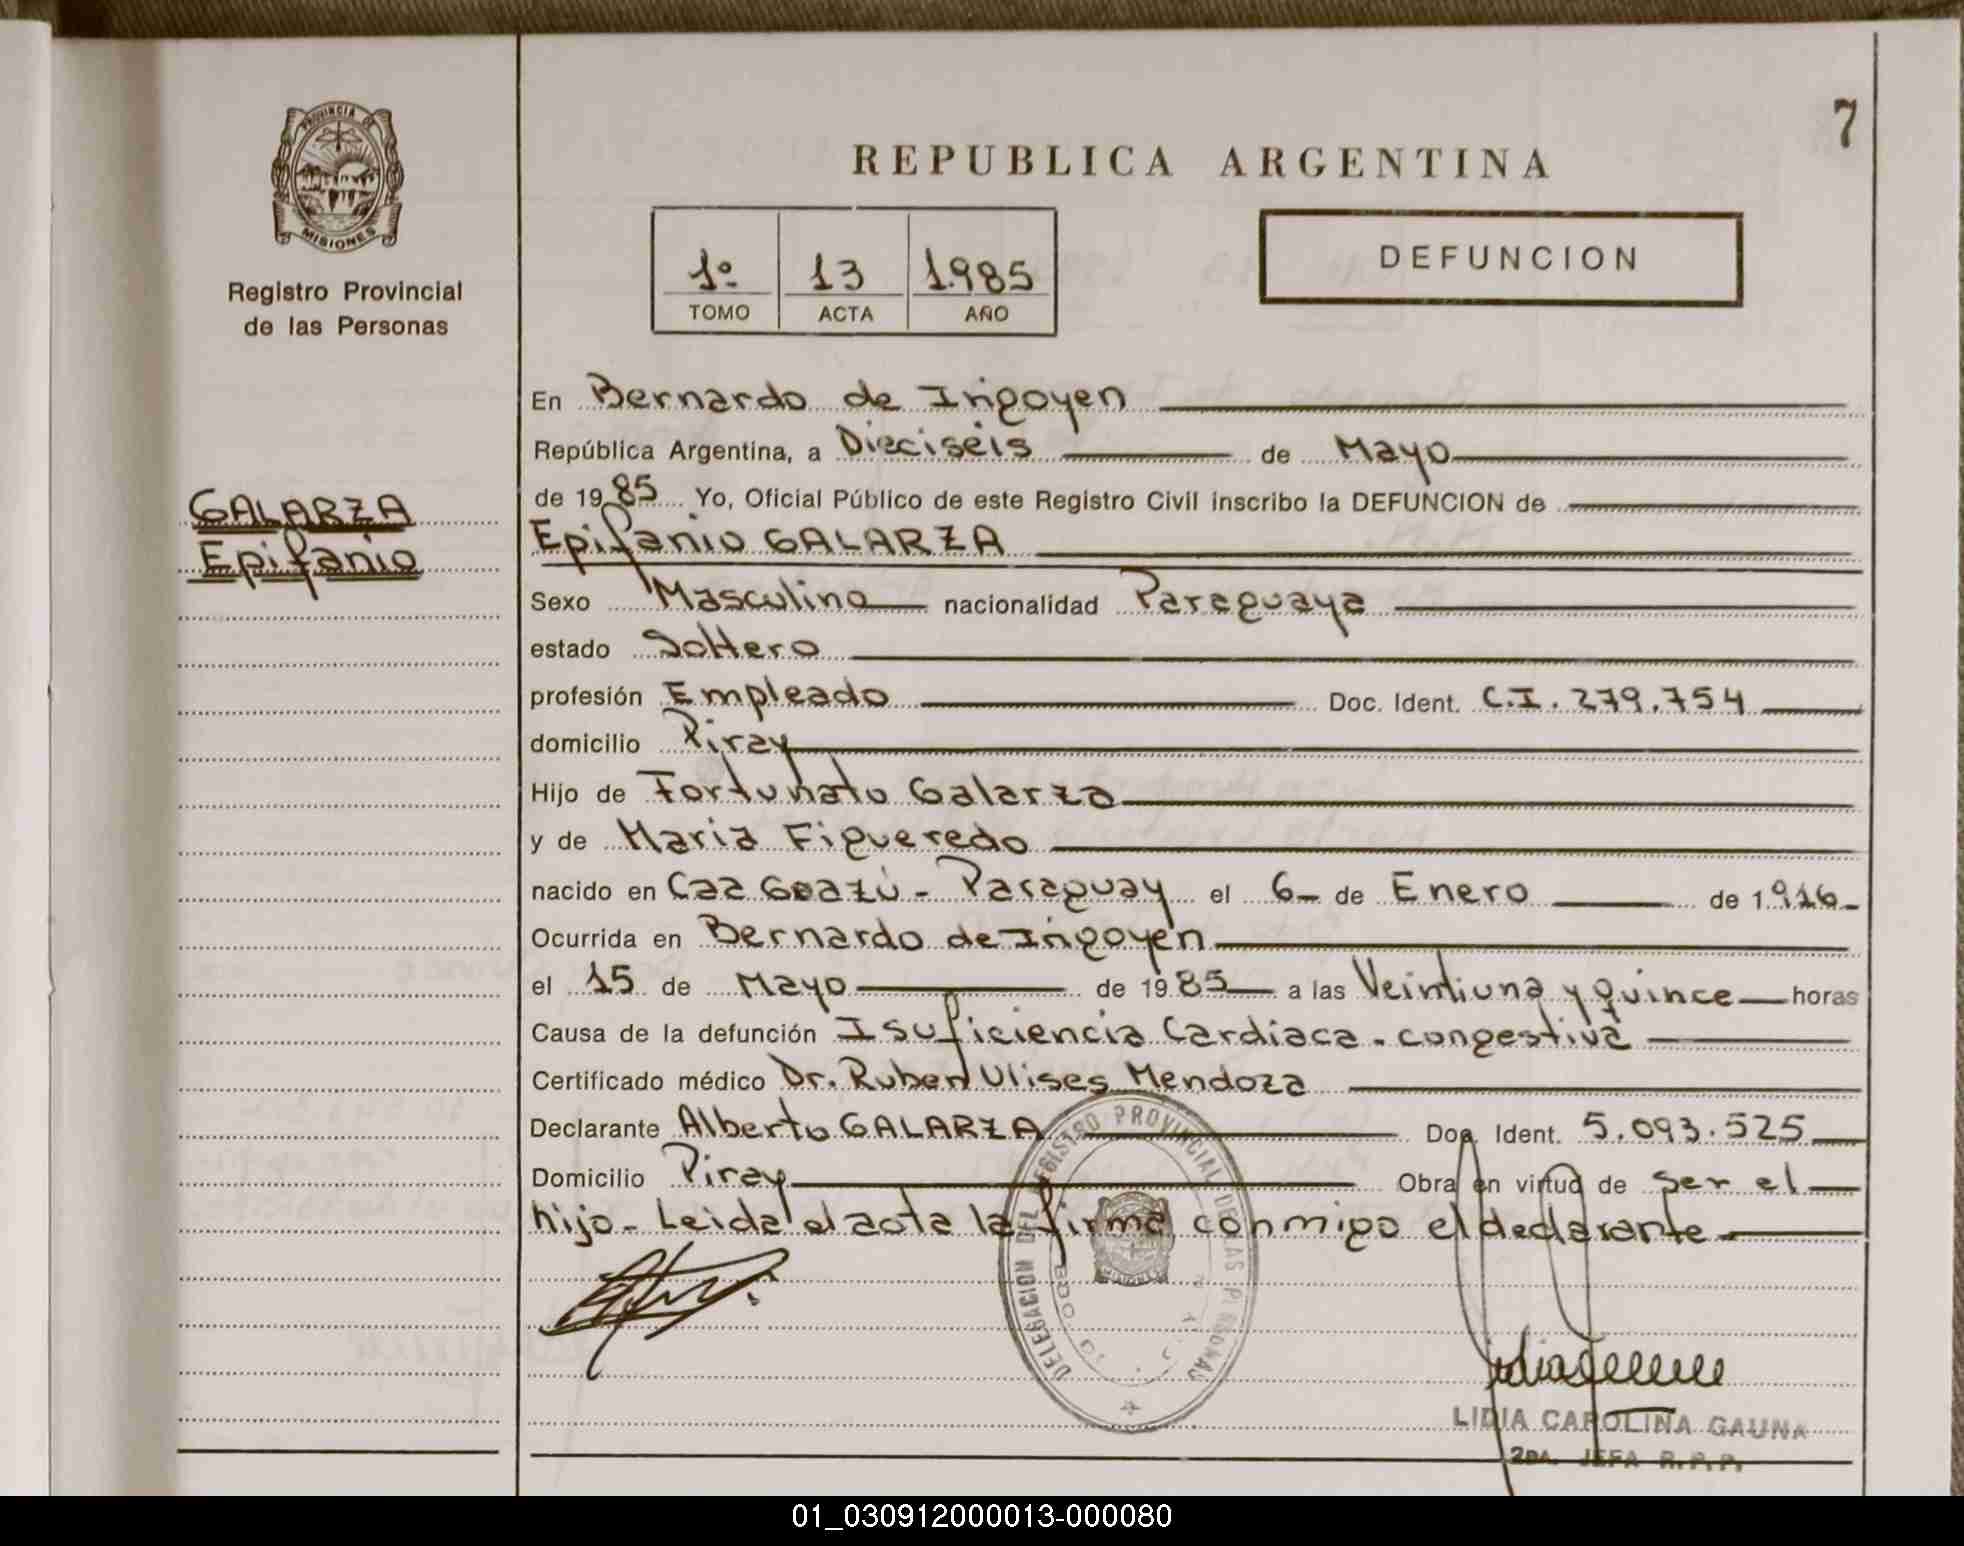 7
PROVINCIA DE
MISIONES
Registro Provincial
de las Personas
REPUBLICA ARGENTINA
1º 13 1.985
TOMO ACTA AÑO
DEFUNCION
GALARZA
Epifanio
En Bernardo de Irigoyen
República Argentina, a Dieciséis de Mayo
de 1985 Yo, Oficial Público de este Registro Civil inscribo la DEFUNCION de
Epifanio GALARZA
Sexo Masculino nacionalidad Paraguaya
estado Soltero
profesión Empleado Doc. Ident. C.I. 279.754
domicilio Piray
Hijo de Fortunato Galarza
y de Maria Figueredo
nacido en Caa Guazú - Paraguay el 6 de Enero de 1916
Ocurrida en Bernardo de Irigoyen
el 15 de Mayo de 1985 a las Veintiuna y quince horas
Causa de la defunción Isuficiencia Cardiaca - congestiva
Certificado médico Dr. Ruben Ulises Mendoza
Declarante Alberto GALARZA Doc. Ident. 5.093.525
Domicilio Piray Obra en virtud de ser el
hijo - Leida el acta la firma conmigo el declarante
DELEGACION DEL REGISTRO PROVINCIAL DE LAS PERSONAS
MISIONES
LIDIA CAROLINA GAUNA
2DA. JEFA R.P.P.
01_030912000013-000080